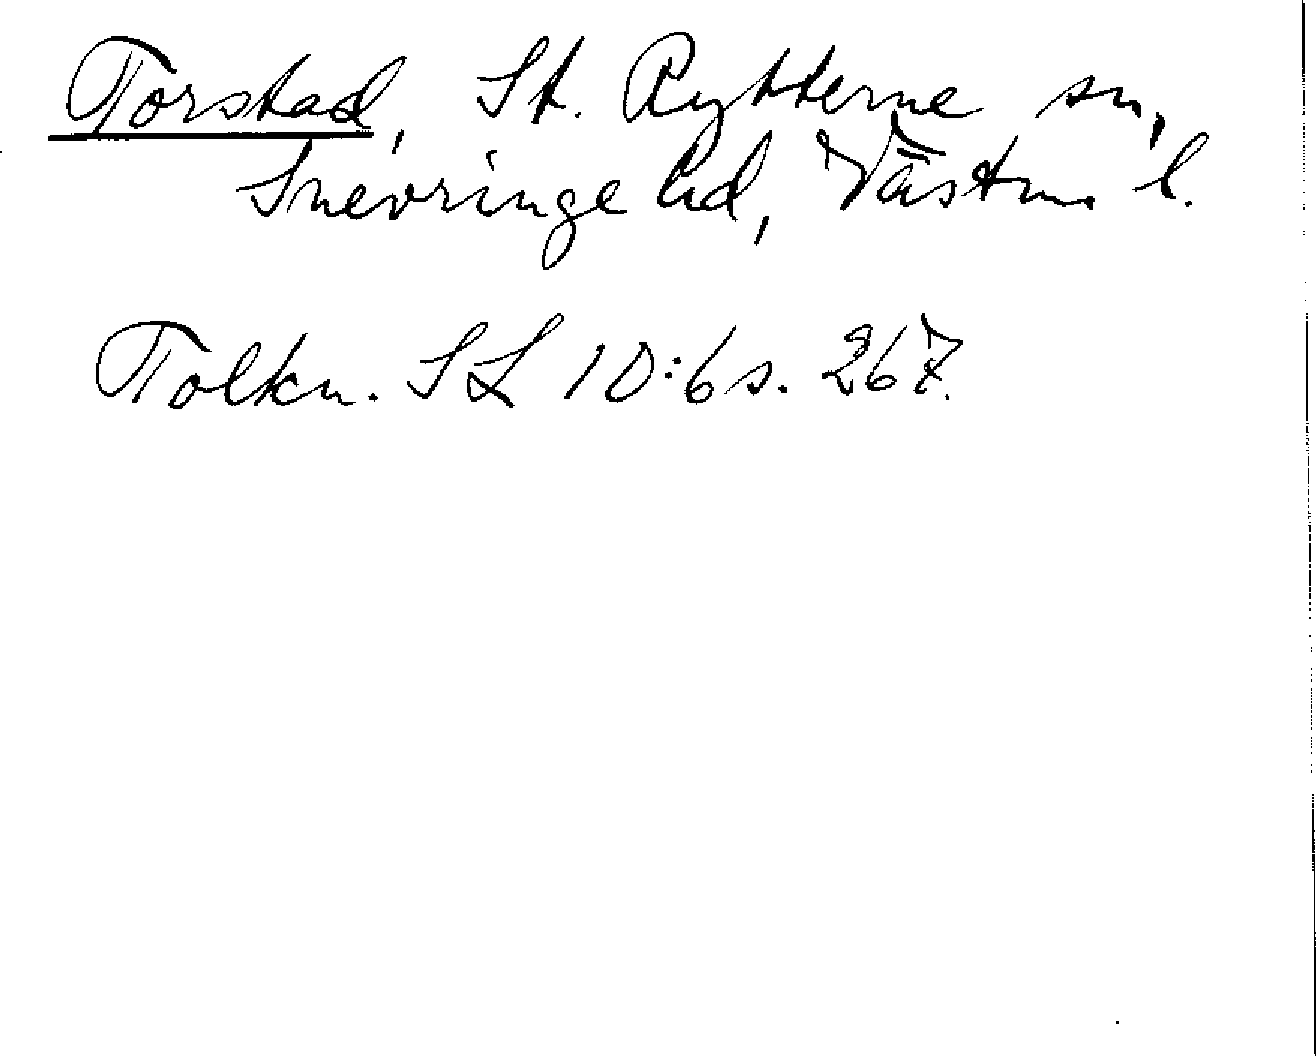 Torstad, St. Rytterne sn,
Snevringe hd, Västm. l.
Tolkn. SL 10:6 s. 267.